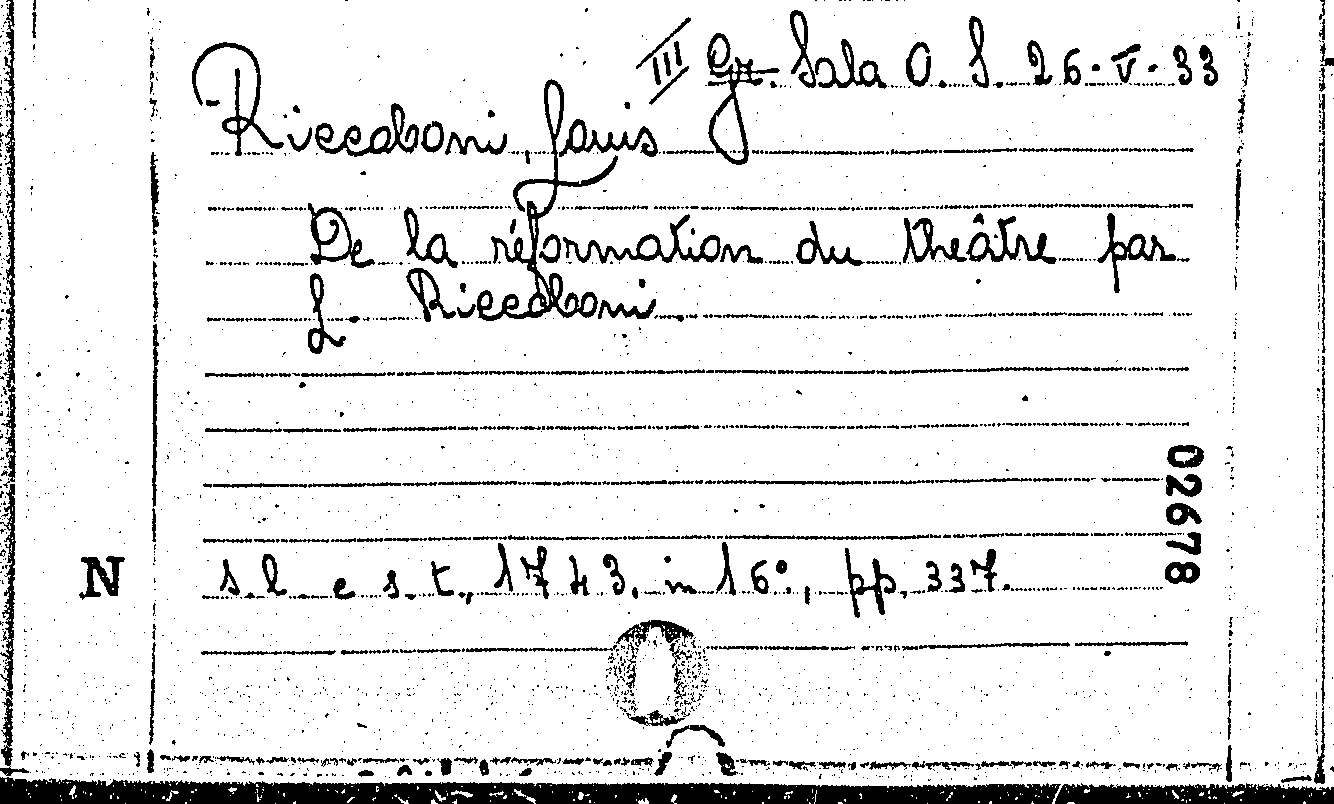 III Gr. Sala O. S. 26-V-33
Riccoboni, Louis
De la réformation du théâtre par
L. Riccoboni.
02678
N
s. l. e s. t., 1743, in 16º, pp. 337.